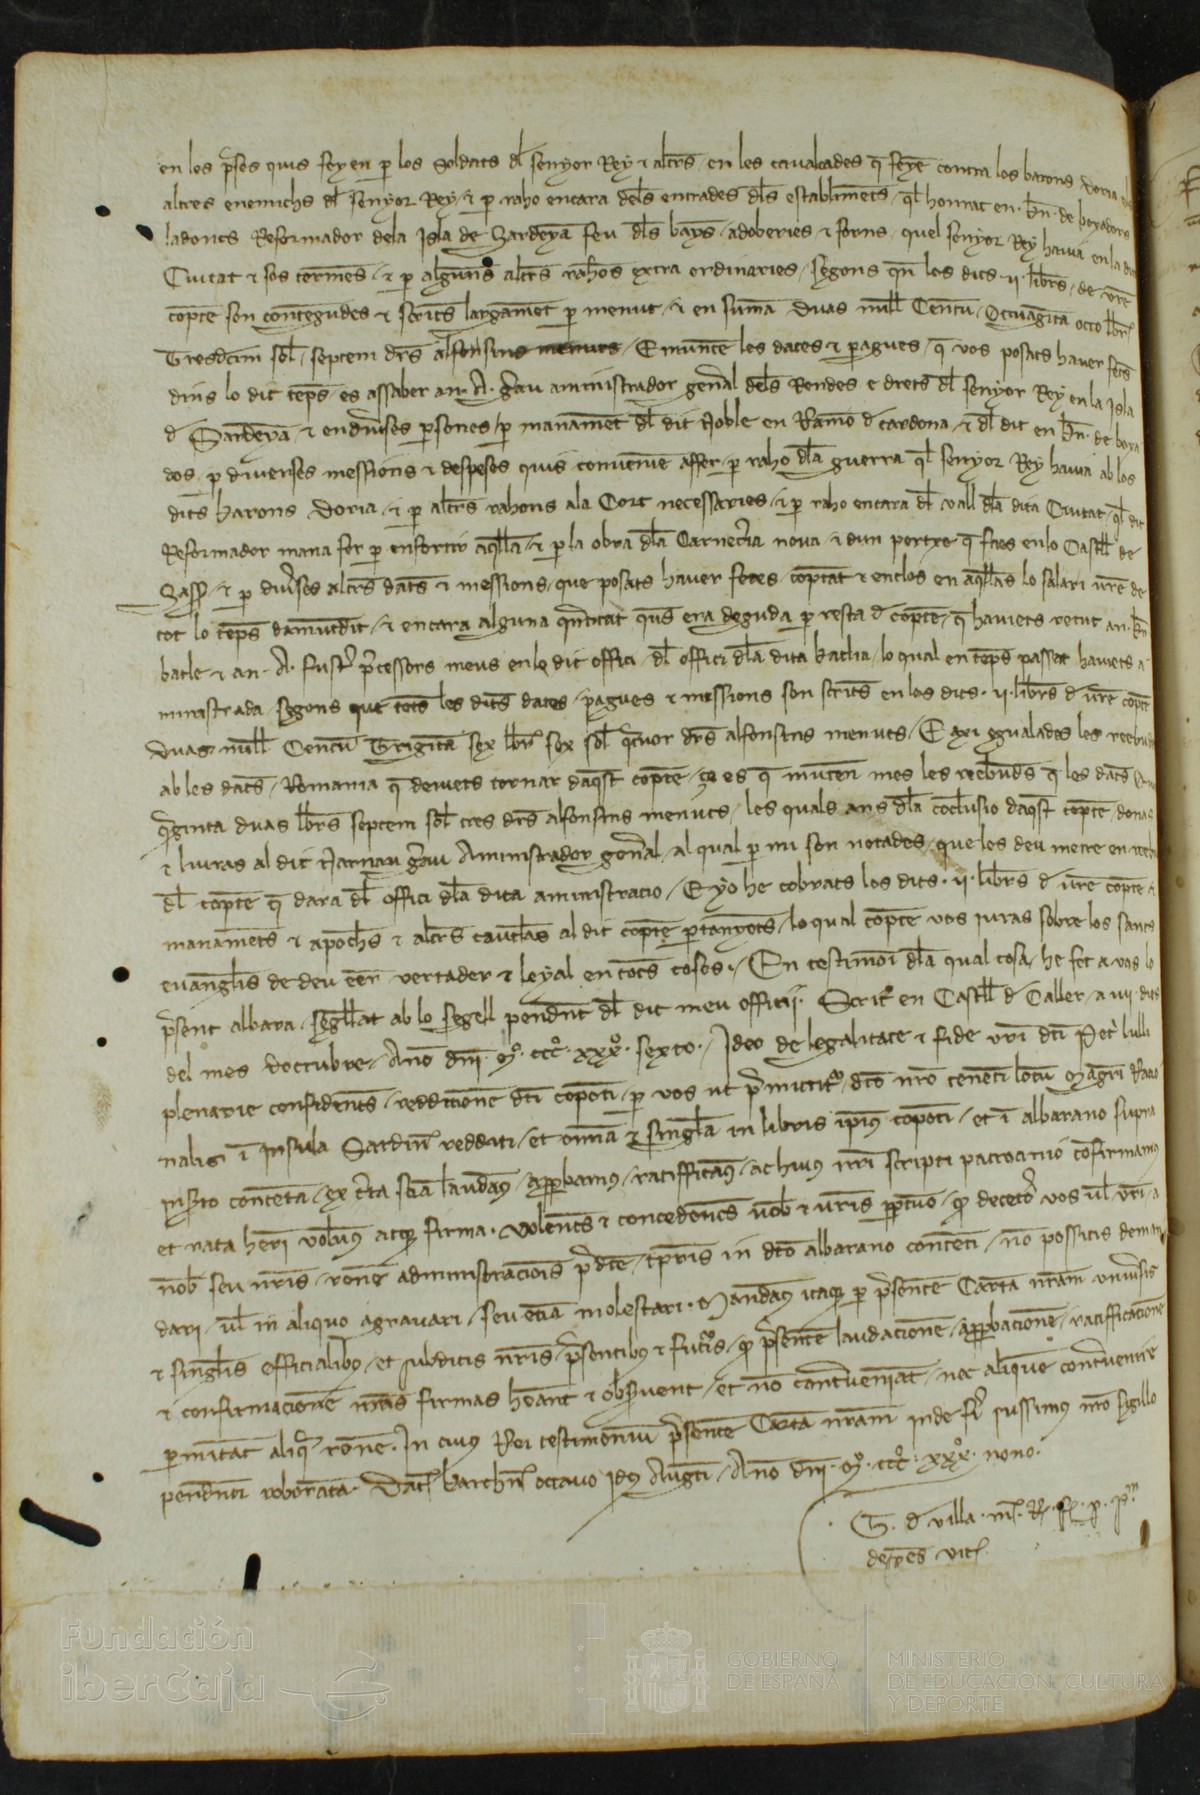 en les p̄ses quis feyen p̱ los soldats dl̄ senyor Rey ⁊ altr̄s en les cavalcades q̄ feyē contra los barons doria
altres enemichs dl̄ senyor Rey / ⁊ p̱ raho encara dels entrades dl̄s establim̄ets / ql̄ honrat en . bn̄ . de boxadors
ladoncs Reformador dela isla de Sardeyā feu dl̄s bays / adoberies ⁊ forns / quel senyor Rey havia en la dita
Ciutat ⁊ sos term̄es / ⁊ p̱ alguns altr̄s rahōs extra ordinaries / segons qn̄ los dits . ii . libr̄s / de vr̄e
cōpte son contengudes ⁊ scrits largam̄et p̱ menut / ⁊ en sumā duas mill̄ Centū / Octuagīta octo lbr̄
Tresdcim sol̄ / septem dr̄s alfonsins menuts / E munten les dates ⁊ pagues / q̄ vos posats haver fets
dins lo dit tēps / es assaber an . A . grau aministrador genr̄al dels Rendes e drets dl̄ senyor Rey en la isla
d̄ Sardeyā / ⁊ endiverses p̱sones / p̱ manam̄et dl̄ dit Noble en Ramō d̄ cardona / ⁊ dl̄ dit en bn̄ . de boxa
dos / p̱ diverses messions ⁊ despeses quis convenie affer / p̱ raho dl̄a guerra ql̄ senyor Rey havia ab los
dits barons doria / ⁊ p̱ altr̄s rahons ala Cort necessaries / ⁊ p̱ raho encara dl̄ vall dl̄a dita Ciutat / ql̄ dit
Reformador mana fer p̱ enfortir aq̄lla / ⁊ p̱ la obra dl̄a Carneceria nova / ⁊ dun portxe q̄ faes en lo Castll̄ de
⁊ p̱ div̄ses altr̄s dats ⁊ messions / que posats haver fetes / cōptat ⁊ enclos en aq̄llas lo salari vr̄e de
tot lo tēps damūtdit / ⁊ encara alguna qn̄titat qus̄ era deguda p̱ resta d̄ cōpte / q̄ haviets retut an . bn̄
batle ⁊ an . A . fust̄ p̄cessors meus en lo dit offici / dl̄ offici dl̄a dita batlia / lo qual en tēps passat haviets a
ministrada / segons que tots les dits dates / pagues ⁊ messions son scrits en los dits . ii . libr̄s d̄ vr̄e cōpte
duas mill̄ Centū Trigīta sex lbr̄ sex sol̄ q̄tuor dr̄s alfonsins menuts / E axi egualades les reebudes
ab les dats / Romania q̄ deviets tornar daq̄st cōpte / ço es q̄ mūten mes les reebuds q̄ les dats
q̄ginta duas lbr̄s septem sol̄ tres dr̄s alfonsins menuts / les quals ans dl̄a cōclusio daq̄st cōpte / donas
⁊ liuras al dit Narnau grau Aministrador genr̄al / al qual p̱ mi son notades / que les deu metre en reebuda
dl̄ cōpte q̄ dara dl̄ offici dl̄a dita aministracio / E yo he cobrats los dits . ii . libr̄s d̄ vr̄e cōpte ⁊
manam̄ets ⁊ apoch̄s ⁊ altr̄s cautl̄as al dit cōpte p̱tanyets / lo qual cōpte vos iuras sobre los sants
evangl̄is de deu eēr vertader ⁊ leyal en totes coses . / En testimoni dl̄a qual cosa / he fet a vos lo
p̄sent albara / segll̄at ab lo segell pendn̄t dl̄ dit meu officii . Scrit en Castll̄ d̄ Caller / a vii . dits
del mes doctubre / Ano dn̄i . Mº . cccº . xxxº . sexto . / Ideo de legalitate ⁊ fide vr̄i dc̄i Petr̄ lulli
plenarie confidents / redditionē dc̄i copoti / p̱ vos ut p̄mittit̄ / dc̄o nr̄o tenēti locū Magr̄i Racio
nalis ī Insula Sardin̄ redditi / et om̄ia ⁊ singl̄a in libris ip̄ius copoti / et ī albarano supra
inserto contēta / ex c̄ta scīa laudam̄ / app̱bamus / ratifficam̄ / ac huius nr̄i scripti patrocinio cōfirmamus
et rata hēri volum̄ atq̄ firma . Volents ⁊ concedēts vob̄ ⁊ vr̄is p̱petuo / q̄ decetero vos ul̄ vr̄i / a
nob̄ seu nr̄is / ronē administracionis p̄dc̄e / t̄pris in dc̄o albarano contēti / nō possitis deman
dari / ul̄ in aliquo agravari / seu etiā molestari . Mandam̄ itaq̄ p̱ p̄sentē Cartā nr̄am univ̄sis
⁊ singl̄is officialibus / et subditis nr̄is / p̄sentibus ⁊ futur̄is / q̄ p̄sentē laudacionē / app̱bacionē / ratifficacionē
⁊ confirmacionē nr̄as firmas heānt ⁊ observent / et nō contraveniāt / nec aliquē contravenire
p̱mitāt aliq̄ ronē . In cuius Rei testimoniū p̄sentē Cartā nr̄am inde fi̇ iussimus nr̄o sigillo
pendn̄ti roboratā . Dat̄ barchn̄ octavo idus Augti / Ano dn̄i . Mº . cccº . xxxº . nono .
G . d̄ villa . mr̄ . R
Fundación
iberCaja
GOBIERNO
DE ESPAÑA
MINISTERIO
DE EDUCACIÓN, CULTURA
Y DEPORTE